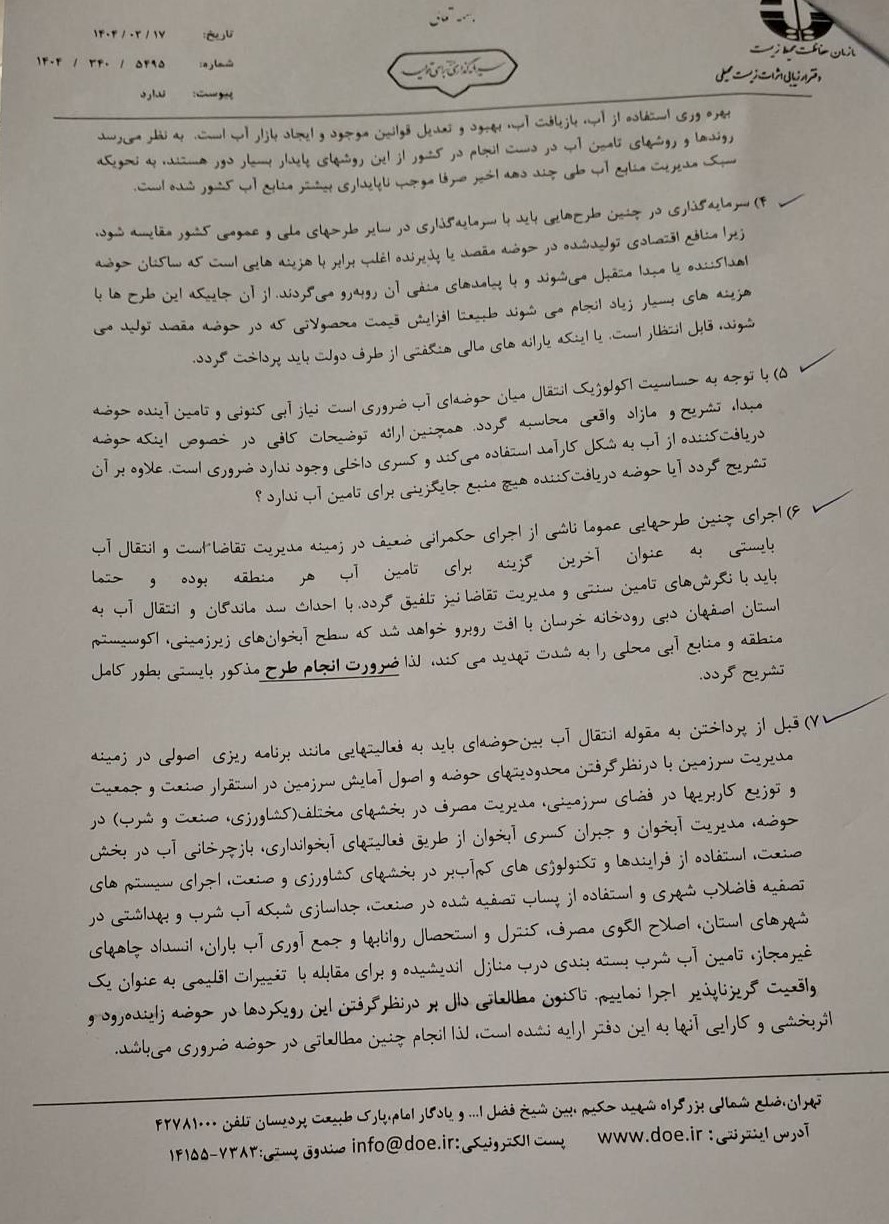 بسمه تعالی
سازمان حفاظت محیط زیست
دفتر ارزیابی اثرات زیست محیطی
سرمایه‌گذاری برای تولید
تاریخ: ۱۴۰۴/۰۳/۱۷
شماره: ۱۴۰۴ / ۳۴۰ / ۵۴۹۵
پیوست: ندارد
بهره وری استفاده از آب، بازیافت آب، بهبود و تعدیل قوانین موجود و ایجاد بازار آب است. به نظر می‌رسد
روندها و روشهای تامین آب در دست انجام در کشور از این روشهای پایدار بسیار دور هستند، به نحویکه
سبک مدیریت منابع آب طی چند دهه اخیر صرفا موجب ناپایداری بیشتر منابع آب کشور شده است.
۴) سرمایه‌گذاری در چنین طرح‌هایی باید با سرمایه‌گذاری در سایر طرحهای ملی و عمومی کشور مقایسه شود،
زیرا منافع اقتصادی تولیدشده در حوضه مقصد یا پذیرنده اغلب برابر با هزینه هایی است که ساکنان حوضه
اهداکننده یا مبدا متقبل می‌شوند و با پیامدهای منفی آن روبه‌رو می‌گردند. از آن جاییکه این طرح ها با
هزینه های بسیار زیاد انجام می شوند طبیعتا افزایش قیمت محصولاتی که در حوضه مقصد تولید می
شوند، قابل انتظار است. یا اینکه یارانه های مالی هنگفتی از طرف دولت باید پرداخت گردد.
۵) با توجه به حساسیت اکولوژیک انتقال میان حوضه‌ای آب ضروری است نیاز آبی کنونی و تامین آینده حوضه
مبدا، تشریح و مازاد واقعی محاسبه گردد. همچنین ارائه توضیحات کافی در خصوص اینکه حوضه
دریافت‌کننده از آب به شکل کارآمد استفاده می‌کند و کسری داخلی وجود ندارد ضروری است. علاوه بر آن
تشریح گردد آیا حوضه دریافت‌کننده هیچ منبع جایگزینی برای تامین آب ندارد ؟
۶) اجرای چنین طرحهایی عموما ناشی از اجرای حکمرانی ضعیف در زمینه مدیریت تقاضا است و انتقال آب
بایستی به عنوان آخرین گزینه برای تامین آب هر منطقه بوده و حتما
باید با نگرش‌های تامین سنتی و مدیریت تقاضا نیز تلفیق گردد. با احداث سد ماندگان و انتقال آب به
استان اصفهان دبی رودخانه خرسان با افت روبرو خواهد شد که سطح آبخوان‌های زیرزمینی، اکوسیستم
منطقه و منابع آبی محلی را به شدت تهدید می کند، لذا ضرورت انجام طرح مذکور بایستی بطور کامل
تشریح گردد.
۷) قبل از پرداختن به مقوله انتقال آب بین‌حوضه‌ای باید به فعالیتهایی مانند برنامه ریزی اصولی در زمینه
مدیریت سرزمین با درنظرگرفتن محدودیتهای حوضه و اصول آمایش سرزمین در استقرار صنعت و جمعیت
و توزیع کاربریها در فضای سرزمینی، مدیریت مصرف در بخشهای مختلف(کشاورزی، صنعت و شرب) در
حوضه، مدیریت آبخوان و جبران کسری آبخوان از طریق فعالیتهای آبخوانداری، بازچرخانی آب در بخش
صنعت، استفاده از فرایندها و تکنولوژی های کم‌آب‌بر در بخشهای کشاورزی و صنعت، اجرای سیستم های
تصفیه فاضلاب شهری و استفاده از پساب تصفیه شده در صنعت، جداسازی شبکه آب شرب و بهداشتی در
شهرهای استان، اصلاح الگوی مصرف، کنترل و استحصال روانابها و جمع آوری آب باران، انسداد چاههای
غیرمجاز، تامین آب شرب بسته بندی درب منازل اندیشیده و برای مقابله با تغییرات اقلیمی به عنوان یک
واقعیت گریزناپذیر اجرا نماییم. تاکنون مطالعاتی دال بر درنظرگرفتن این رویکردها در حوضه زاینده‌رود و
اثربخشی و کارایی آنها به این دفتر ارایه نشده است، لذا انجام چنین مطالعاتی در حوضه ضروری می‌باشد.
تهران،ضلع شمالی بزرگراه شهید حکیم ،بین شیخ فضل ا... و یادگار امام،پارک طبیعت پردیسان تلفن ۴۲۷۸۱۰۰۰
آدرس اینترنتی: www.doe.ir پست الکترونیکی:info@doe.ir صندوق پستی:۷۳۸۳-۱۴۱۵۵